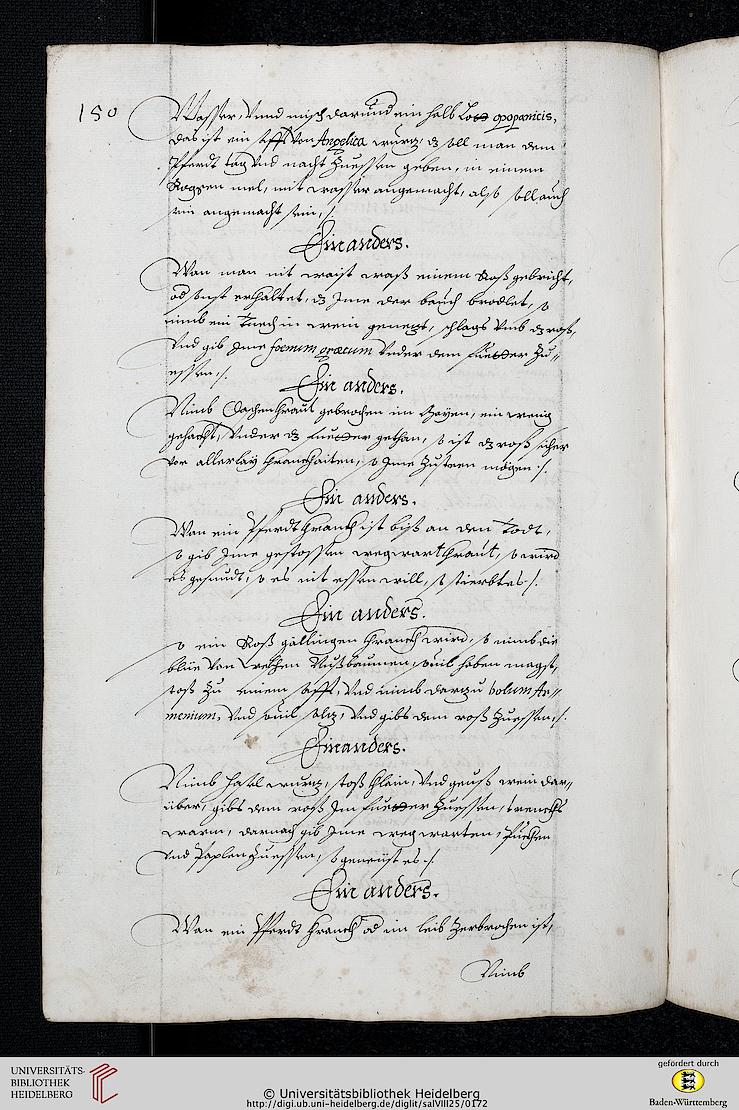 150
Wasser, Vnnd misch darund ein halb Lott opopanicis,
das ist ein safft von Angelica wurtz, dz soll man dem
Pferdt tag vnd nacht Zuessen geben, in einem
Roggen mel, mit wasser angemacht, also soll auch
sein angemacht sein /.
Ein anders.
Wan man nit waist waß einem Roß gebricht,
od sonst erhaltet, dz Jme der bauch brodlet, so
nimb ein Tuech in wein genetzt, schlags vmb dz roß,
vnd gib Jme foenum græcum vnder dem fuetter Zu
essen /.
Ein anders.
Nimb gebrochen im Meyen, ein wenig
gehackt, vnder dz fuetter gethan, so ist dz roß sicher
vor allerlay kranckhaiten, so Jme Zusteen mögen /.
Ein anders.
Wan ein Pferdt kranckh ist biß an den Todt,
so gib Jme gestossen wegwart kraut, so wird
es gesundt, so es nit essen will, so stierbt es /.
Ein anders.
So ein Roß gählingen kranckh wird, so nimb die
blüe von welschen Nußbaumen, souil haben magst,
stoß Zu einem safft, vnd nimb dartzu bolum Ar=
menium, vnd souil saltz, vnd gibs dem roß Zuessen /.
Ein anders.
Nimb wurtz, stoß klain, vnd geuß wein dar=
über, gibs dem roß Jm fuetter Zuessen, trenckhs
warm, darnach gib Jme wegwarten,
vnd Paplen Zuessen, so geneust es /.
Ein anders.
Wan ein Pferdt kranckh od im leib Zerbrochen ist,
Nimb
UNIVERSITÄTS-
BIBLIOTHEK
HEIDELBERG
© Universitätsbibliothek Heidelberg
http://digi.ub.uni-heidelberg.de/diglit/salVIII25/0172
gefördert durch
Baden-Württemberg